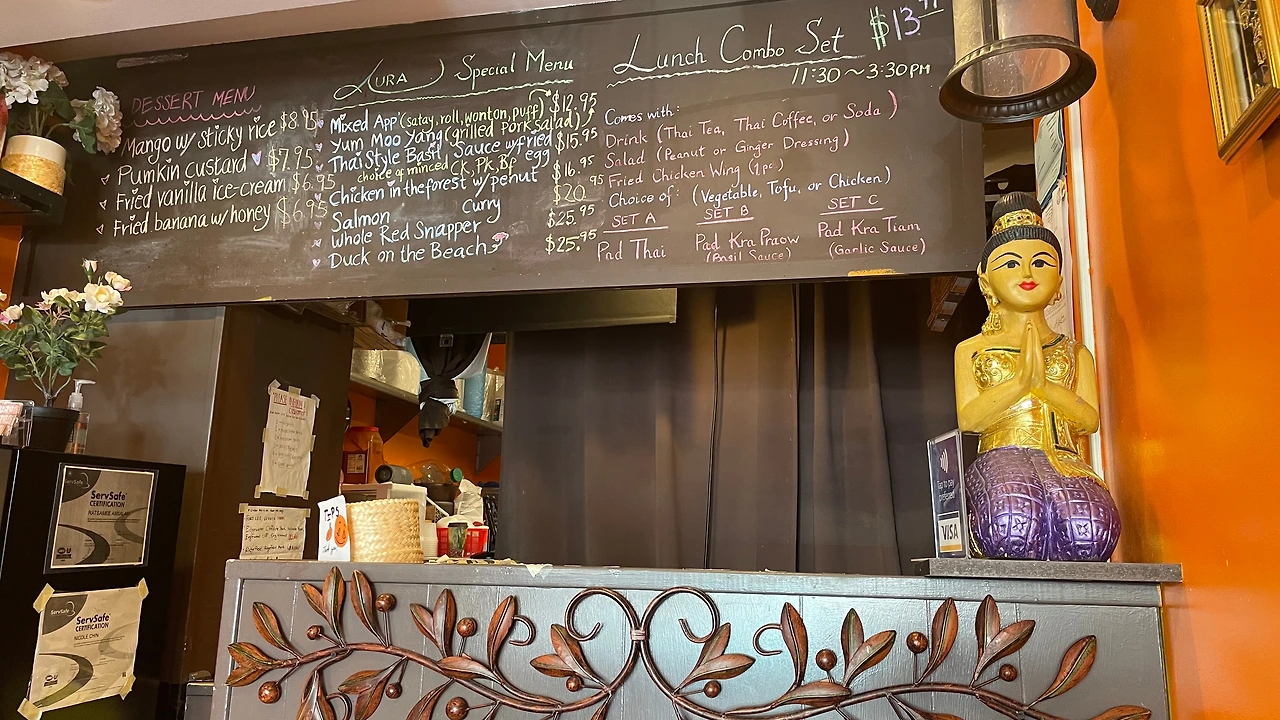 DESSERT MENU
Mango w/ sticky rice $8.95
Pumkin custard $7.95
Fried vanilla ice-cream $6.95
Fried banana w/ honey $6.95
LURA Special Menu
Mixed App (satay, roll, wonton, puff) $12.95
Yum Moo Yang (grilled pork salad)
Thai Style Basil Sauce w/ fried egg $15.95
choice of minced CK, PK, BF
Chicken in the forest w/ penut curry $16.95
Salmon $20.95
Whole Red Snapper $25.95
Duck on the Beach $25.95
Lunch Combo Set $13
11:30 ~ 3:30PM
Comes with:
Drink (Thai Tea, Thai Coffee, or Soda)
Salad (Peanut or Ginger Dressing)
Fried Chicken Wing (1pc)
Choice of: (Vegetable, Tofu, or Chicken)
SET A SET B SET C
Pad Thai Pad Kra Praow Pad Kra Tiam
(Basil Sauce) (Garlic Sauce)
ServSafe
ServSafe
CERTIFICATION
ServSafe
ServSafe
CERTIFICATION
NICOLE CHIN
TIPS
Tap to pay
VISA